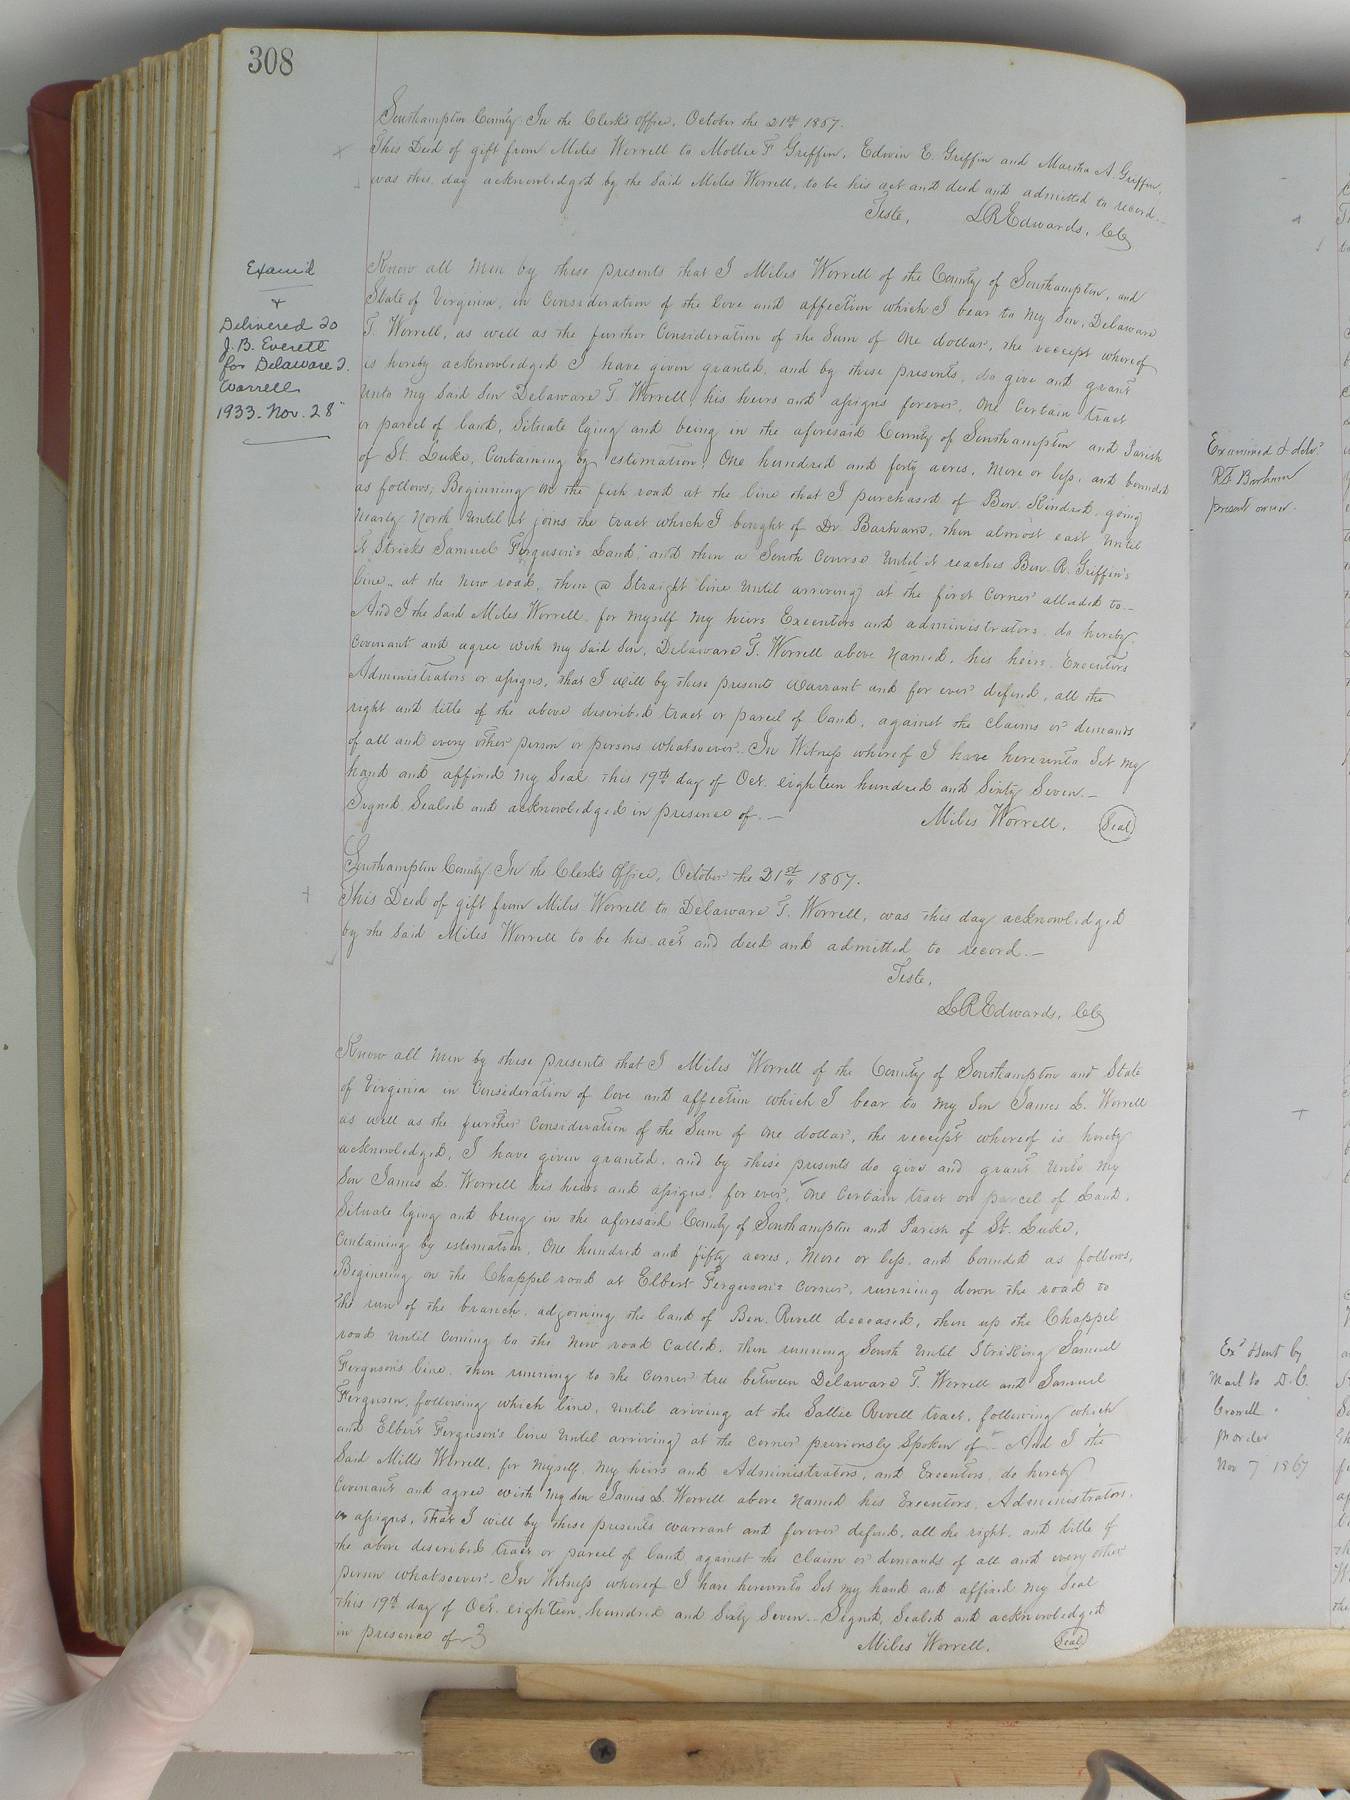 308
Southampton County. In the Clerk's Office, October the 21st 1867.
This Deed of gift from Miles Worrell to Mollie F Griffin, Edwin E. Griffin and Martha A. Griffin,
was this day acknowledged by the Said Miles Worrell, to be his act and deed and admitted to record.
Teste,
LREdwards, CC
Exam'd
+
Delivered to
J. B. Everett
for Delaware T.
Worrell
1933-Nov. 28"
Know all Men by these presents that I Miles Worrell of the County of Southampton, and
State of Virginia, in Consideration of the love and affection which I bear to My Son, Delaware
T. Worrell, as well as the further Consideration of the Sum of One dollar, the receipt whereof
is hereby acknowledged I have given granted, and by these presents, do give and grant
Unto My Said Son Delaware T. Worrell, his heirs and assigns forever, One Certain tract
or parcel of land, Situate lying and being in the aforesaid County of Southampton and Parish
of St. Luke, Containing by estimation, One hundred and forty acres, More or less, and bounded
as follows; Beginning on the fish road at the line that I purchased of Ben. Kindred, going
Nearly North Until it joins the tract which I bought of Dr. Barham, then almost east Until
It Stricks Samuel Ferguson's Land, and then a South Course Until it reaches Ben. R. Griffin's
line, at the New road, then a Straight line Until arriving at the first Corner alluded to.—
And I the Said Miles Worrell, for Myself My heirs Executors and administrators, do hereby
Covenant and agree with My Said Son, Delaware T. Worrell above Named, his heirs, Executors
Administrators or assigns, that I will by these presents Warrant and for ever defend, all the
right and title of the above described tract or parcel of land, against the Claims or demands
of all and every other person or persons whatsoever. In Witness whereof I have hereunto Set My
hand and affixed My Seal this 19th day of Oct. eighteen hundred and Sixty Seven.—
Signed, Sealed and acknowledged in presence of.—
Miles Worrell, (Seal)
Southampton County. In the Clerk's Office, October the 21st 1867.
This Deed of gift from Miles Worrell to Delaware T. Worrell, was this day acknowledged
by the Said Miles Worrell to be his act and deed and admitted to record.—
Teste,
LREdwards, CC
Know all Men by these presents that I Miles Worrell of the County of Southampton and State
of Virginia in Consideration of love and affection which I bear to My Son James L. Worrell
as well as the further Consideration of the Sum of One dollar, the receipt whereof is hereby
acknowledged, I have given granted, and by these presents do give and grant Unto My
Son James L. Worrell his heirs and assigns, for ever, One Certain tract or parcel of Land,
Situate lying and being in the aforesaid County of Southampton and Parish of St. Luke,
Containing by estimation, One hundred and fifty acres, More or less, and bounded as follows,
Beginning on the Chappel road at Elbert Ferguson's Corner, running down the road to
the run of the branch, adjoining the land of Ben. Revell deceased, then up the Chappel
road Until Coming to the New road Called, then running South Until Striking Samuel
Ferguson's line, then running to the Corner tree between Delaware T. Worrell and Samuel
Ferguson, following which line, Until ariving at the Sallie Revell tract, following which
and Elbert Ferguson's line Until arriving at the Corner previously Spoken of.— And I the
Said Mills Worrell, for Myself, My heirs and Administrators, and Executors, do hereby
Covenant and agree with My Son James L. Worrell above Named his Executors, Administrators,
or assigns, that I will by these presents warrant and forever defend, all the right, and title of
the above described tract or parcel of land against the Claim or demands of all and every other
person whatsoever. In Witness whereof I have hereunto Set My hand and affixed My Seal
this 19th day of Oct. eighteen hundred and Sixty Seven.— Signed, Sealed and acknowledged
in presence of
Miles Worrell, (Seal)
Examined & deld.
R.F. Barham
present owner.
Exd. & sent by
Mail to D. C.
Crowell
pr order
Nov 7 1867